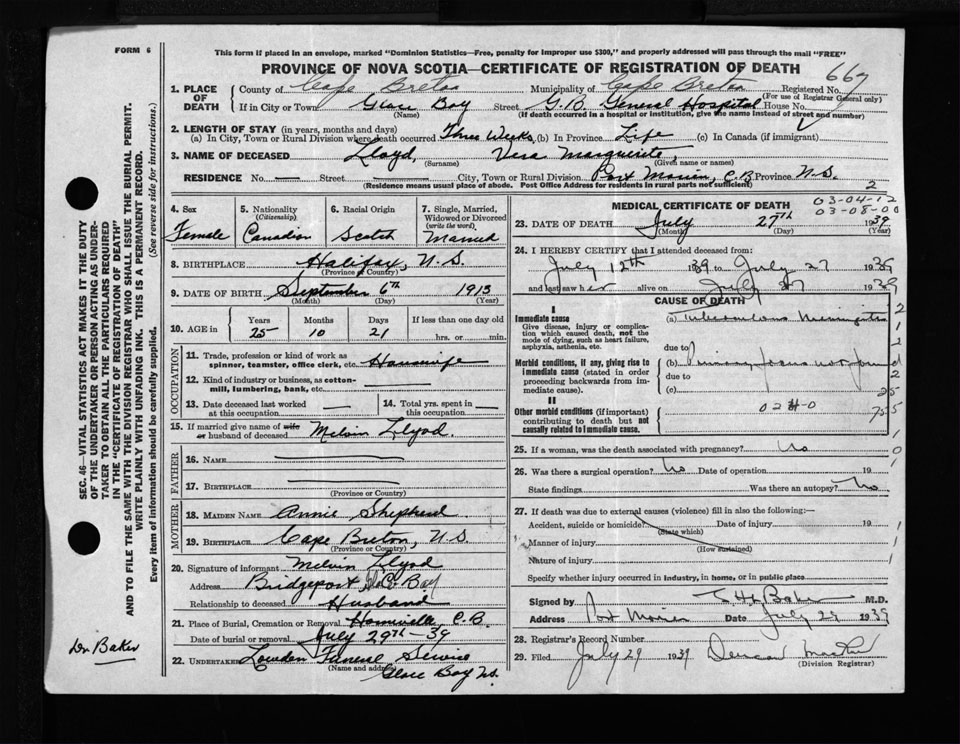 FORM 6
This form if placed in an envelope, marked "Dominion Statistics—Free, penalty for improper use $300," and properly addressed will pass through the mail "FREE"
PROVINCE OF NOVA SCOTIA—CERTIFICATE OF REGISTRATION OF DEATH
667
1. PLACE OF DEATH County of Cape Breton Municipality of Cape Breton Registered No.
(For use of Registrar General only)
If in City or Town Glace Bay Street G.B. General Hospital House No.
(Name) (If death occurred in a hospital or institution, give the name instead of street and number)
2. LENGTH OF STAY (in years, months and days)
(a) In City, Town or Rural Division where death occurred Three Weeks (b) In Province Life (c) In Canada (if immigrant)
3. NAME OF DECEASED Lloyd, Vera Marguerite,
(Surname) (Given name or names)
RESIDENCE No. — Street City, Town or Rural Division Port Morien, C.B. Province N.S.
(Residence means usual place of abode. Post Office Address for residents in rural parts not sufficient)
2
4. Sex Female
5. Nationality (Citizenship) Canadian
6. Racial Origin Scotch
7. Single, Married, Widowed or Divorced (write the word) Married
8. BIRTHPLACE Halifax, N.S.
(Province or Country)
9. DATE OF BIRTH September 6th 1913
(Month) (Day) (Year)
10. AGE in Years Months Days If less than one day old
25 10 21 hrs. or min.
OCCUPATION
11. Trade, profession or kind of work as spinner, teamster, office clerk, etc. Housewife
12. Kind of industry or business, as cotton-mill, lumbering, bank, etc. —
13. Date deceased last worked at this occupation —
14. Total yrs. spent in this occupation —
15. If married give name of wife or husband of deceased Melvin Llyod.
FATHER
16. NAME
17. BIRTHPLACE
(Province or Country)
MOTHER
18. MAIDEN NAME Annie Shepherd
19. BIRTHPLACE Cape Breton, N.S.
(Province or Country)
20. Signature of informant Melvin Llyod
Address Bridgeport, Glace Bay
Relationship to deceased Husband
21. Place of Burial, Cremation or Removal Homeville, C.B.
Date of burial or removal July 29th - 39
22. UNDERTAKER Lowden Funeral Service
(Name and address) Glace Bay N.S.
MEDICAL CERTIFICATE OF DEATH
03-04-12
03-08-00
23. DATE OF DEATH July 27th 1939
(Month) (Day) (Year)
24. I HEREBY CERTIFY that I attended deceased from
July 12th 1939 to July 27 1939
and last saw her alive on July 27 1939
CAUSE OF DEATH
I
Immediate cause (a) Tuberculous Meningitis
Give disease, injury or complication which caused death, not the mode of dying, such as heart failure, asphyxia, asthenia, etc.
due to
Morbid conditions, if any, giving rise to immediate cause (stated in order proceeding backwards from immediate cause).
(b) Primary focus not found
due to
(c)
II
Other morbid conditions (if important) contributing to death but not causally related to immediate cause.
25. If a woman, was the death associated with pregnancy? No
26. Was there a surgical operation? No Date of operation 19
State findings Was there an autopsy? No
27. If death was due to external causes (violence) fill in also the following:—
Accident, suicide or homicide? Date of injury 19
(State which)
Manner of injury
(How sustained)
Nature of injury
Specify whether injury occurred in industry, in home, or in public place
Signed by Baker M.D.
Address Port Morien Date July 29 1939
28. Registrar's Record Number
29. Filed July 29 1939 Duncan
(Division Registrar)
SEC. 46—VITAL STATISTICS ACT MAKES IT THE DUTY
OF THE UNDERTAKER OR PERSON ACTING AS UNDER-
TAKER TO OBTAIN ALL THE PARTICULARS REQUIRED
IN THE "CERTIFICATE OF REGISTRATION OF DEATH"
AND TO FILE THE SAME WITH THE DIVISION REGISTRAR WHO SHALL ISSUE THE BURIAL PERMIT.
WRITE PLAINLY WITH UNFADING INK. THIS IS A PERMANENT RECORD.
Every item of information should be carefully supplied. (See reverse side for instructions.)
Dr Baker